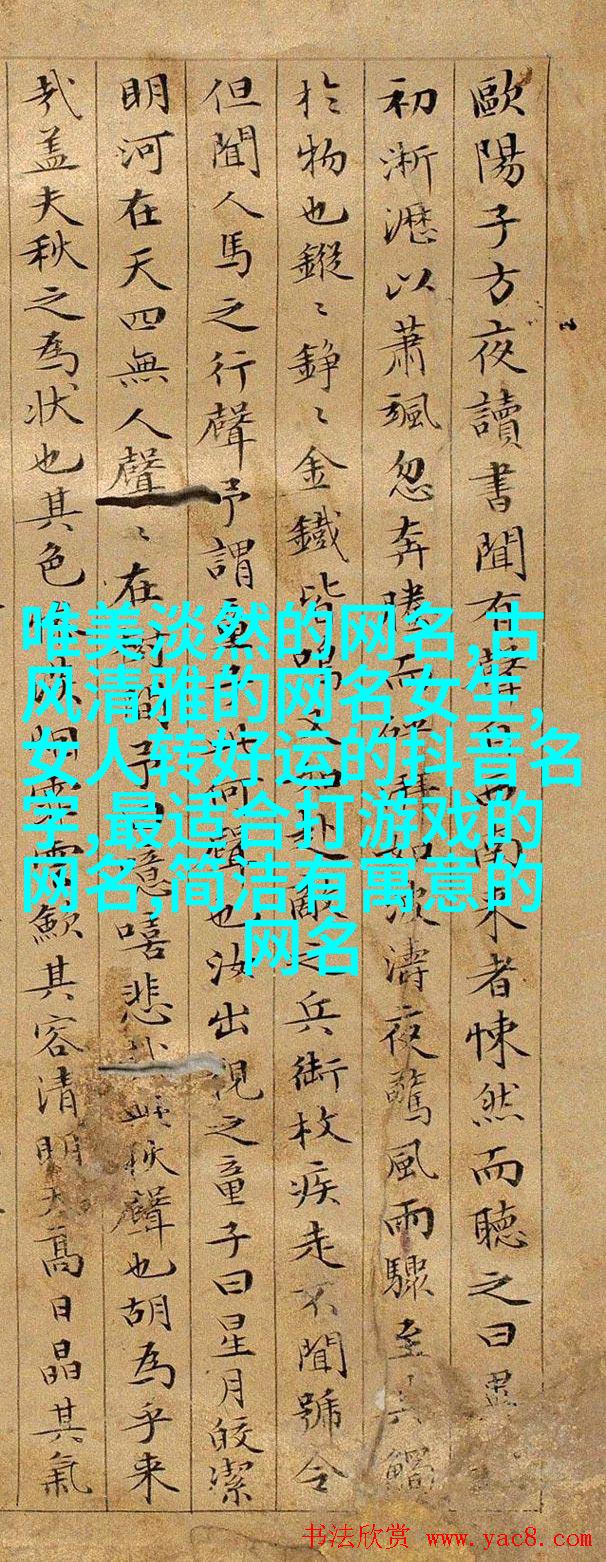 歐陽子方夜讀書聞有聲自西南来者悚然而聽之曰異
初淅瀝以蕭颯忽奔騰而砰湃如波濤夜驚風雨驟至其觸
於物也鏦〻錚〻金鐵皆鳴又如赴敵之兵銜枚疾走不聞號令
但聞人馬之行聲予謂童子此何聲也汝出視之童子曰星月皎潔
明河在天四無人聲〻在樹間予曰噫嘻悲此秋聲也胡為乎来
哉盖夫秋之為状也其色淡烟霏雲歛其容清明天高日晶其氣
唯美淡然的网名,古
风清雅的网名女生,
女人转好运的抖音名
字,最适合打游戏的
网名,简洁有寓意的
网名
书法欣赏 www.yac8.com